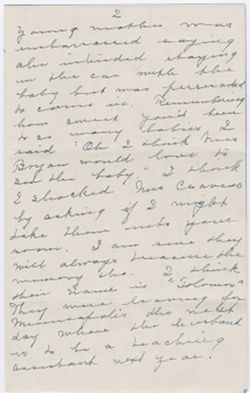 2
Young mother was
embarrassed saying
she intended staying
in the car with the
baby but was persuaded
to come in. Remembering
how sweet you've been
to so many babies I
said "Oh I think Miss
Bryan would love to
see the baby." I think
I shocked Mrs
by asking if I might
take them into your
room. I am sure they
will always treasure the
memory too. I think
their name is "Solomon"
They were leaving for
Minneapolis the next
day where the husband
is to be a teaching
assistant next year.